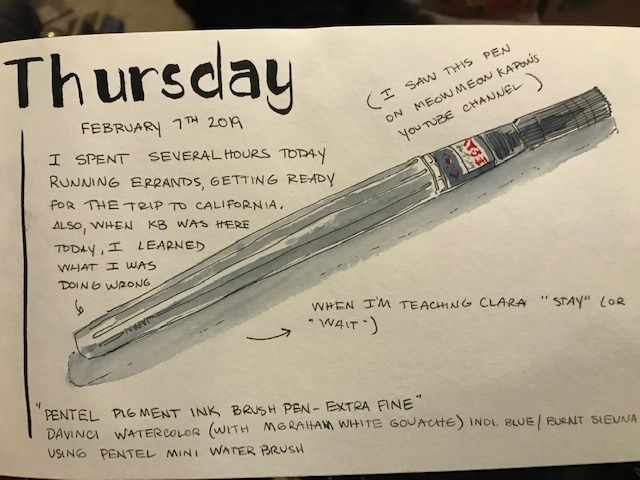 Thursday
FEBRUARY 7TH 2019
(I SAW THIS PEN
ON MEOWMEOW KAPOW'S
YOUTUBE CHANNEL)
I SPENT SEVERAL HOURS TODAY
RUNNING ERRANDS, GETTING READY
FOR THE TRIP TO CALIFORNIA.
ALSO, WHEN KB WAS HERE
TODAY, I LEARNED
WHAT I WAS
DOING WRONG
WHEN I'M TEACHING CLARA "STAY" (OR
"WAIT")
JAPAN
"PENTEL PIGMENT INK BRUSH PEN - EXTRA FINE"
DAVINCI WATERCOLOR (WITH MGRAHAM WHITE GOUACHE) INDI. BLUE/BURNT SIENNA
USING PENTEL MINI WATER BRUSH